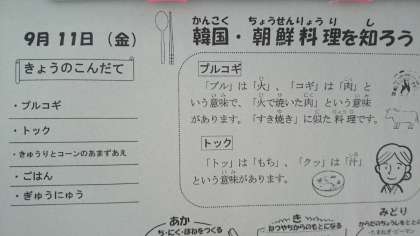 9月 11日 (金)
韓国・朝鮮料理を知ろう
かんこく ちょうせんりょうり し
きょうのこんだて
・プルコギ
・トック
・きゅうりとコーンのあまずあえ
・ごはん
・ぎゅうにゅう
プルコギ
「プル」は「火」、「コギ」は「肉」と
いう意味で、「火で焼いた肉」という意味
があります。「すき焼き」に似た料理です。
トック
「トッ」は「もち」、「クッ」は「汁」
という意味があります。
あか
ち・にく・ほねをつくる
き
ねつやちからのもとになる
みどり
からだのちょうしをとと